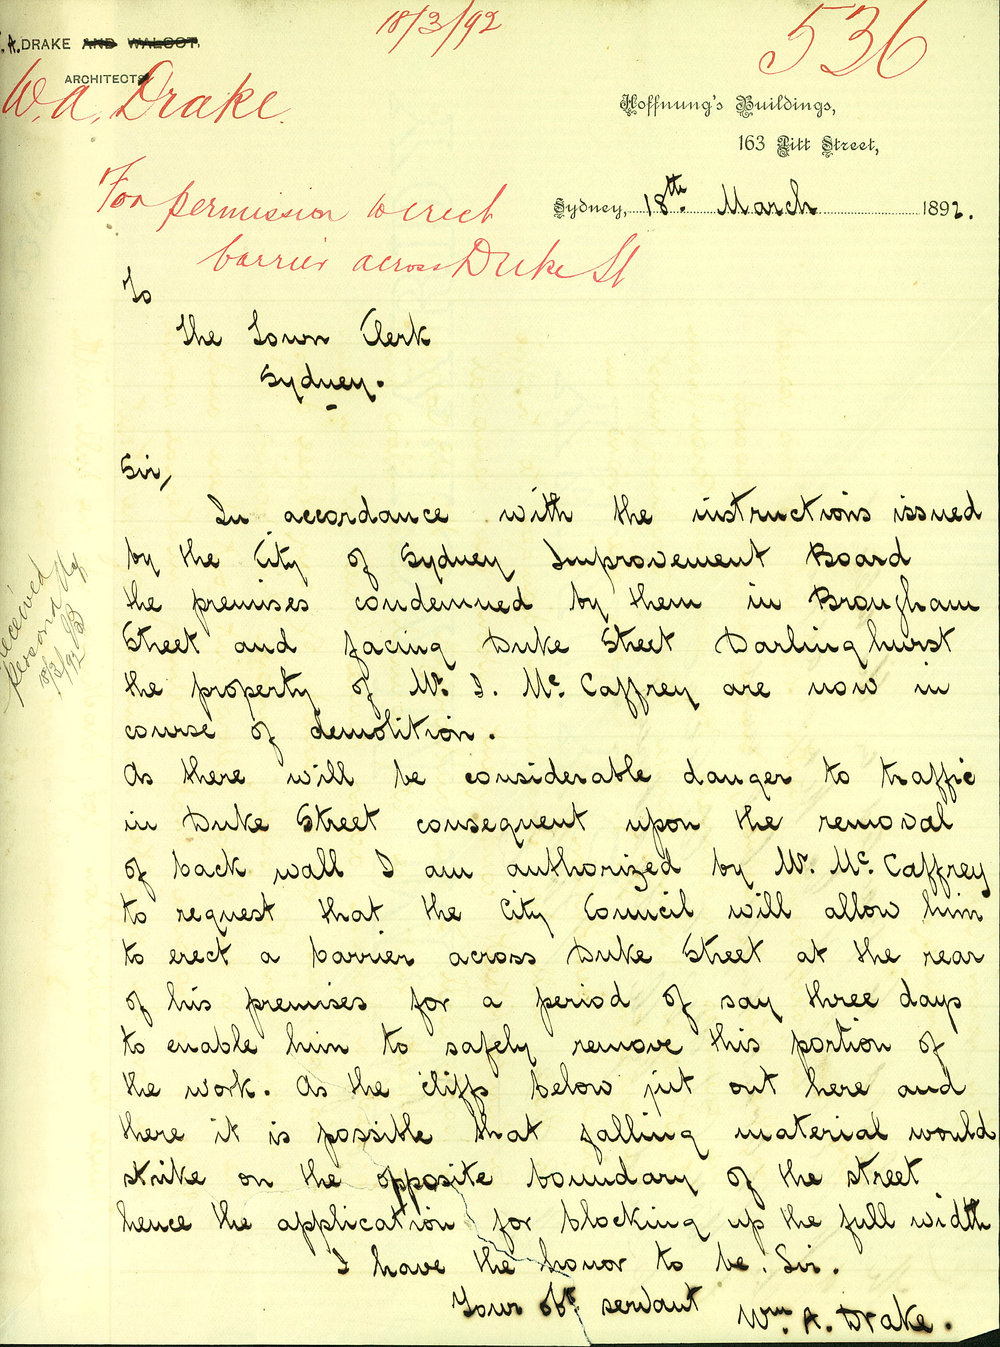 18/3/92
536
W. A. DRAKE AND WALCOT.
ARCHITECTS
W. A. Drake.
Hoffnung's Buildings,
163 Pitt Street,
For permission to erect
barrier across Duke St
Sydney, 18th. March 1892.
To
The Town Clerk
Sydney.
Sir,
In accordance with the instructions issued
by the City of Sydney Improvement Board
the premises condemned by them in Brougham
Street and facing Duke Street Darlinghurst
the property of Mr. J. Mc. Caffrey are now in
course of demolition.
As there will be considerable danger to traffic
in Duke Street consequent upon the removal
of back wall I am authorized by Mr. Mc. Caffrey
to request that the City Council will allow him
to erect a barrier across Duke Street at the rear
of his premises for a period of say three days
to enable him to safely remove this portion of
the work. As the cliffs below jut out here and
there it is possible that falling material would
strike on the opposite boundary of the street
hence the application for blocking up the full width
I have the honor to be. Sir.
Your Obt. servant
Wm. A. Drake.
received
personally
18/3/92